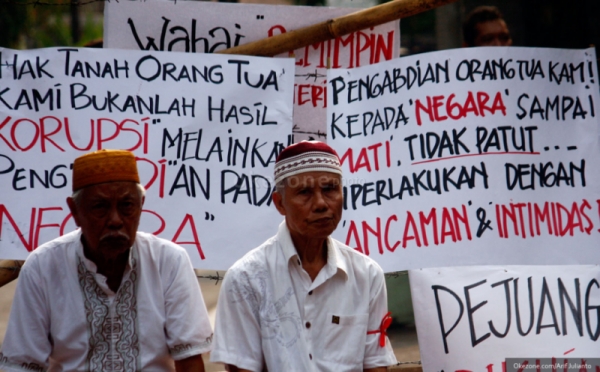 Wahai PEMIMPIN
HAK TANAH ORANG TUA
KAMI BUKANLAH HASIL
KORUPSI" MELAINKAN
PENG
"AN PADA
NEGARA"
PENGABDIAN ORANG TUA KAMI
KEPADA 'NEGARA' SAMPAI
MATI, TIDAK PATUT...
DIPERLAKUKAN DENGAN
ANCAMAN' & INTIMIDASI!
PEJUANG
Okezone.com/Arif Julianto